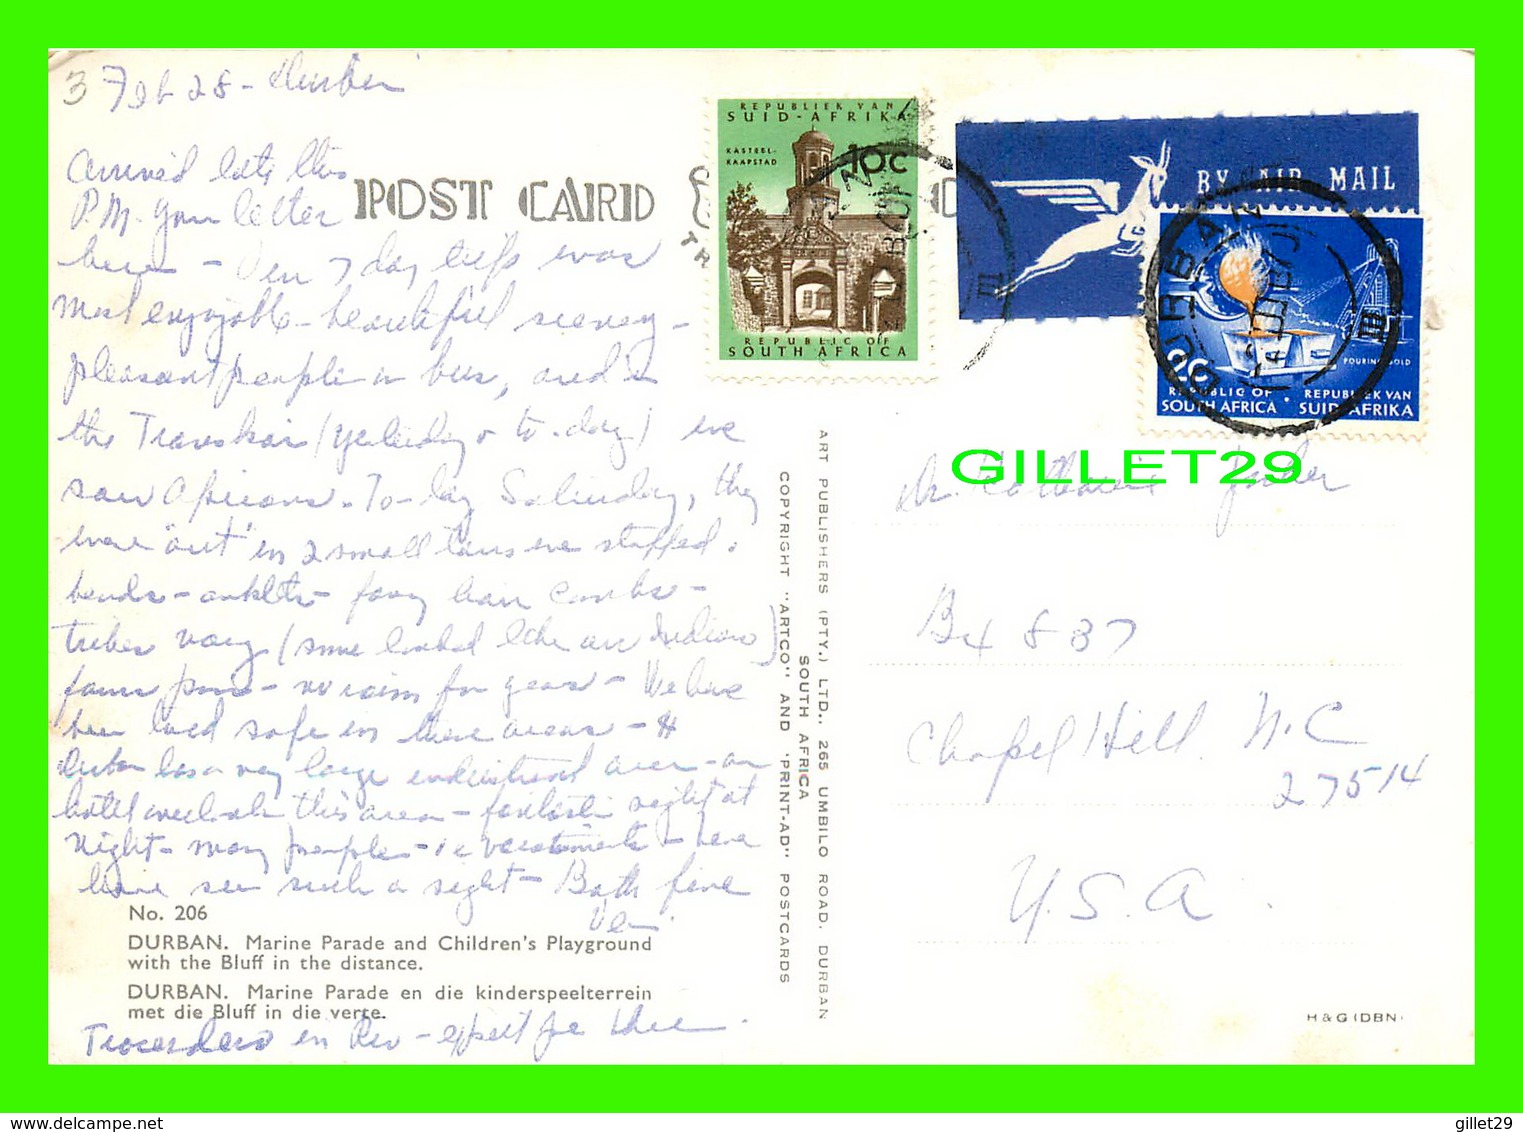 3 Feb 28 - Durban
arrived late this
P.M. Your letter
here - Our 7 day trip was
most enjoyable - beautiful scenery -
pleasant people in bus, and in
the Transkei (yesterday & to-day) we
saw Africans. To-day Saturday, they
were "out" in 2 small towns we stopped.
beads - anklets - fancy hair combs -
tribes vary (some looked like our Indians)
farms poor - no rain for years - We have
been in these areas -
Durban has a very large industrial area - our
hotel overlooks this area - fantastic sight at
night - many people - never
have seen such a sight - Both fine
POST CARD
REPUBLIEK VAN
SUID-AFRIKA
KASTEEL-
KAAPSTAD
10c
REPUBLIC OF
SOUTH AFRICA
BY AIR MAIL
DURBAN
20
POURING GOLD
REPUBLIC OF SOUTH AFRICA · REPUBLIEK VAN SUID-AFRIKA
GILLET29
Dr. Katharine
Bx 837
Chapel Hill N.C
27514
U.S.A.
ART PUBLISHERS (PTY.) LTD., 265 UMBILO ROAD, DURBAN
SOUTH AFRICA
COPYRIGHT "ARTCO" AND 'PRINT-AD" POSTCARDS
No. 206
DURBAN. Marine Parade and Children's Playground
with the Bluff in the distance.
DURBAN. Marine Parade en die kinderspeelterrein
met die Bluff in die verte.
H & G (DBN)
gillet29